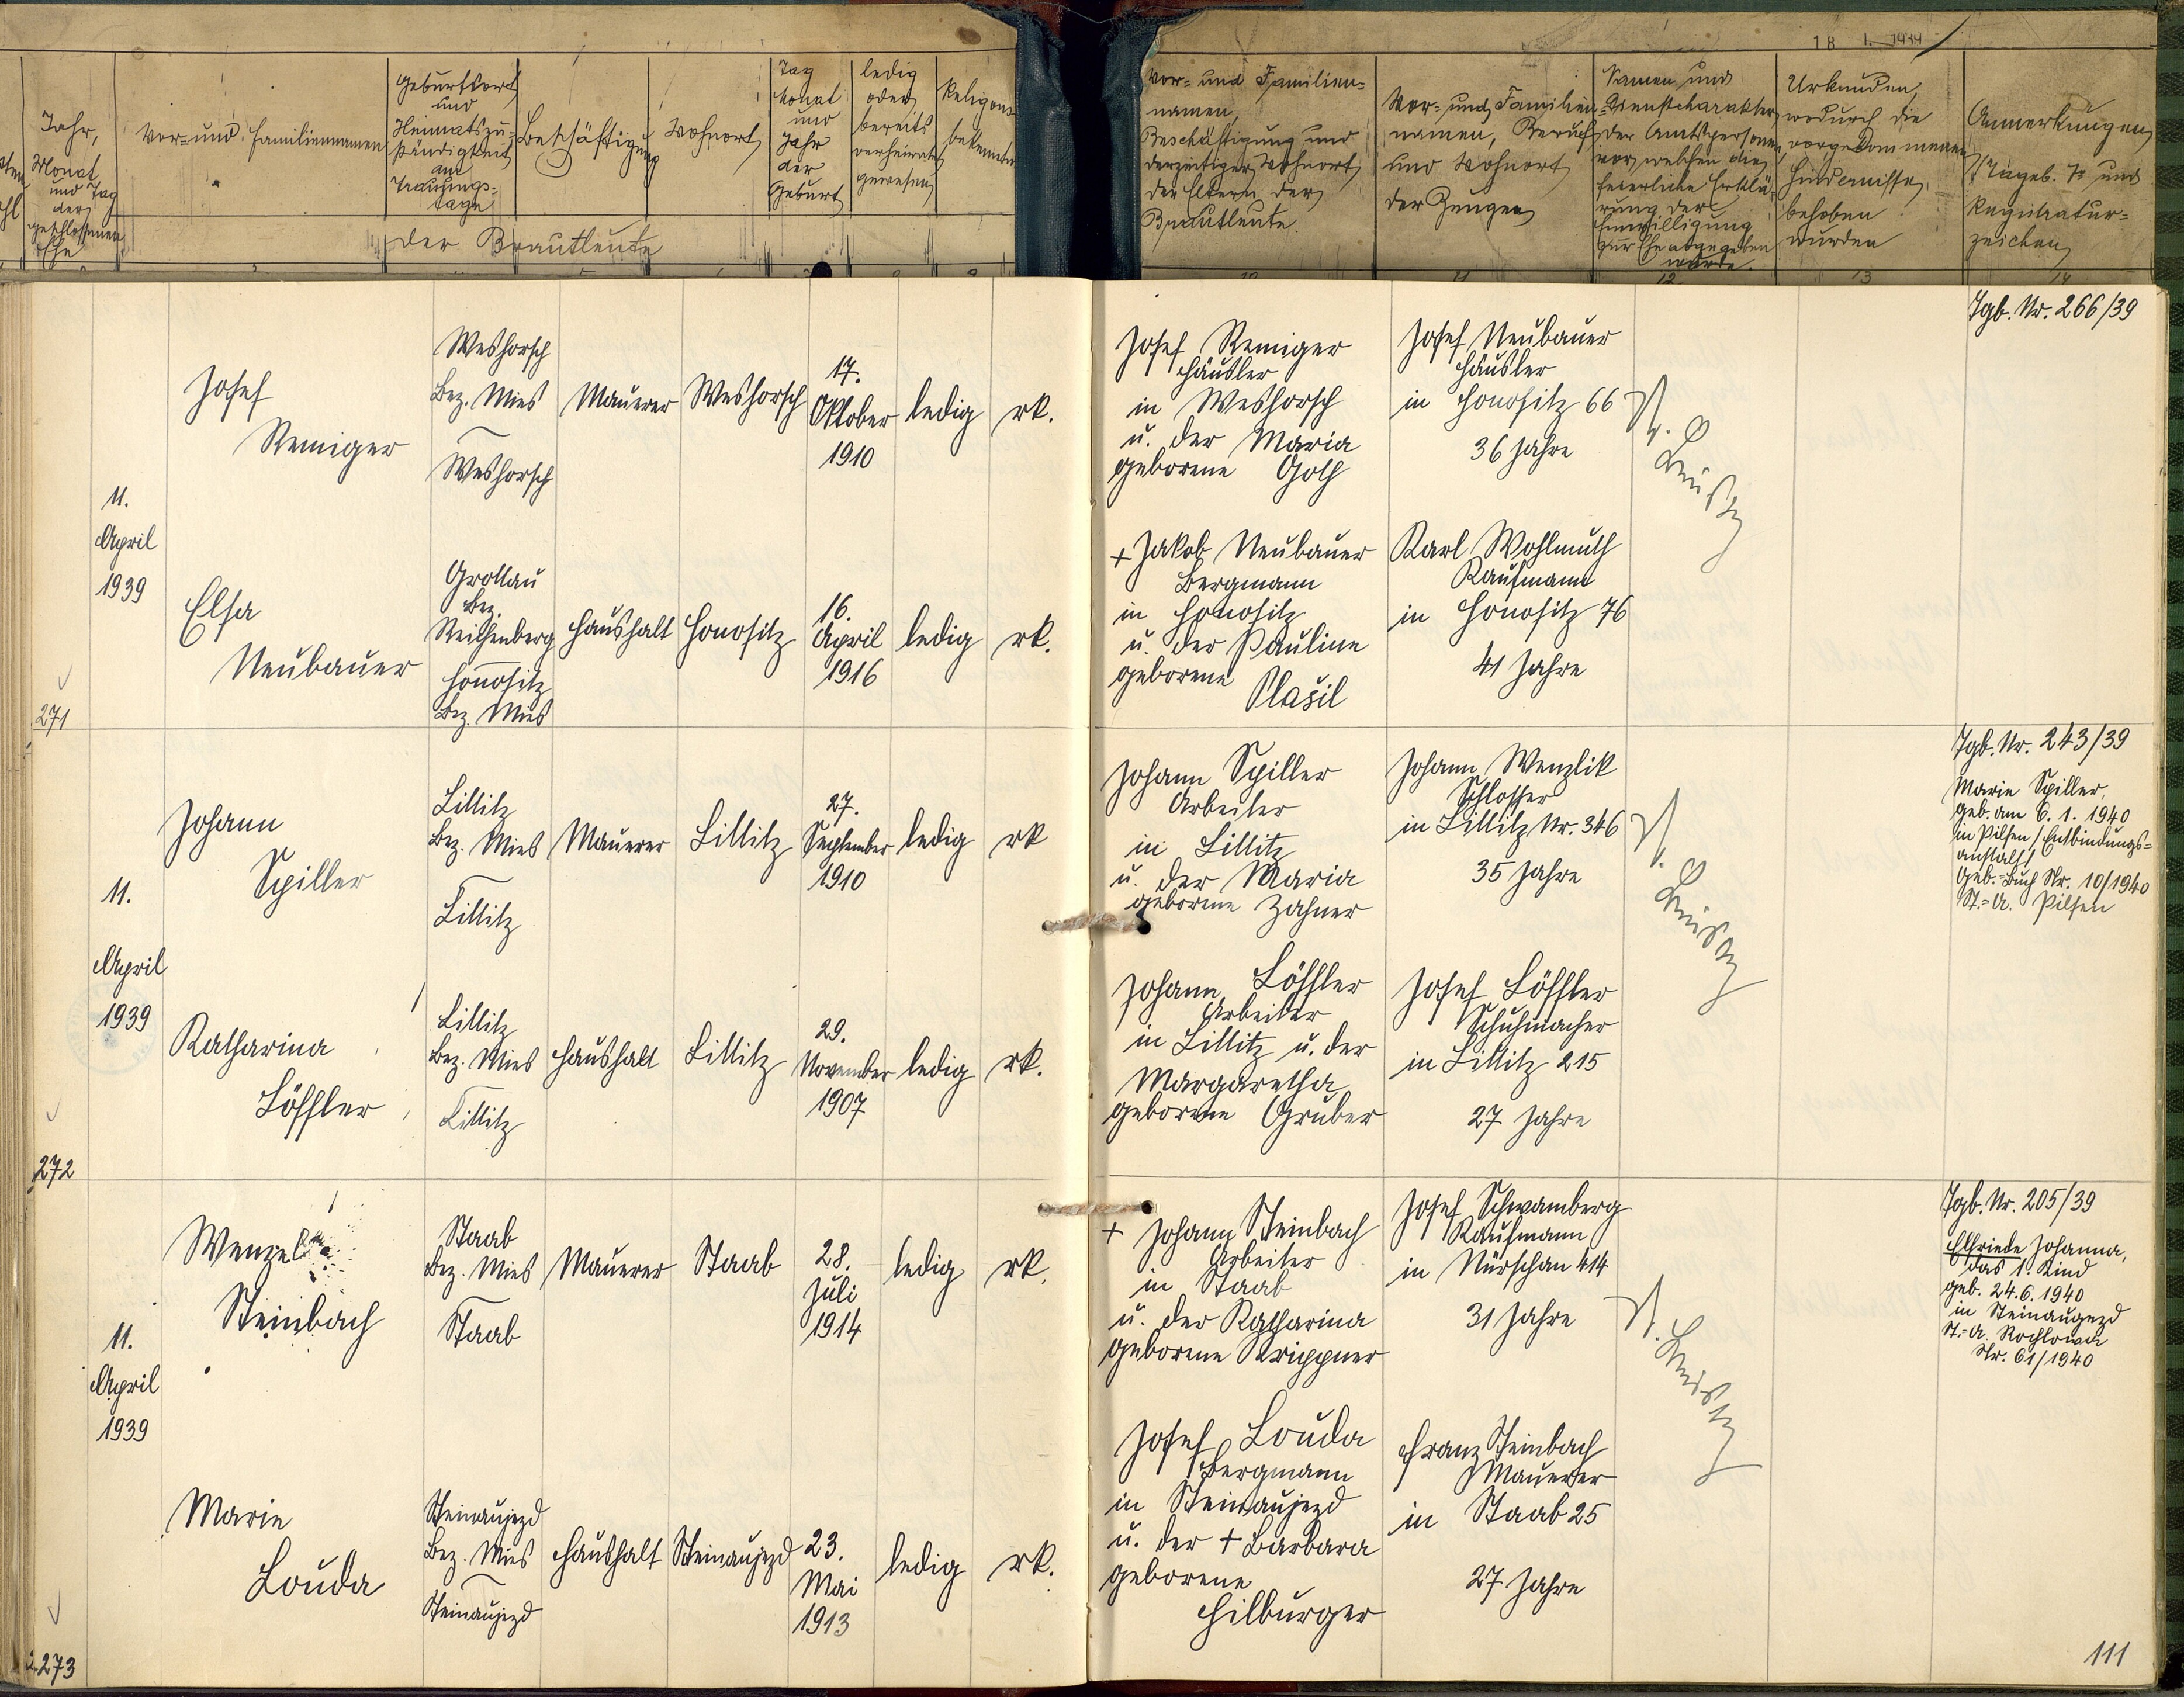 Jahr,
Monat
und Tag
der
geschlossenen
Ehe
Vor- und Familiennamen
Geburtsort
und
Heimatszu-
ständigkeit
am
Trauungs-
tage
Beschäftigung
Wohnort
Tag
Monat
und
Jahr
der
Geburt
ledig
oder
bereits
verheiratet
gewesen
Religions
bekenntnis
der Brautleute
Vor- und Familien-
namen,
Beschäftigung und
derzeitiger Wohnort
der Eltern der
Brautleute.
Vor- und Familien-
namen, Beruf
und Wohnort
der Zeugen
Namen und
Dienstcharakter
der Amtsperson
vor welcher die
feierliche Erklä-
rung der
Einwilligung
zur Ehe abgegeben
wurde.
Urkunden,
wodurch die
vorgekommenen
Hindernisse
behoben
wurden
Anmerkungen
Tageb. Nr und
Registratur-
zeichen
10
11
12
13
14
271
11.
April
1939
Josef
Reiniger
Weshorsch
Bez. Mies
Weshorsch
Maurer
Weshorsch
17.
Oktober
1910
ledig
rk.
Josef Reiniger
Häusler
in Weshorsch
u. der Maria
geborene Goth
Josef Neubauer
Häusler
in Honositz 66
36 Jahre
Tgb. Nr. 266/39
Elsa
Neubauer
Grottau
Bez.
Reichenberg
Honositz
Bez. Mies
Haushalt
Honositz
16.
April
1916
ledig
rk.
+ Jakob Neubauer
Bergmann
in Honositz
u. der Pauline
geborene
Plašil
Karl Wohlmuth
Kaufmann
in Honositz 76
41 Jahre
272
11.
April
1939
Johann
Spiller
Littitz
Bez. Mies
Littitz
Maurer
Littitz
27.
September
1910
ledig
rk
Johann Spiller
Arbeiter
in Littitz
u. der Maria
geborene Zahner
Johann Wenzlik
Schlosser
in Littitz Nr. 346
35 Jahre
Tgb. Nr. 243/39
Marie Spiller,
geb. am 6. 1. 1940
in Pilsen / Entbindungs-
anstalt/
Geb.-Buch Nr. 10/1940
St.-A. Pilsen
Katharina
Löffler
Littitz
Bez. Mies
Littitz
Haushalt
Littitz
29.
November
1907
ledig
rk.
Johann Löffler
Arbeiter
in Littitz u. der
Margaretha
geborene Gruber
Josef Löffler
Schuhmacher
in Littitz 215
27 Jahre
273
11.
April
1939
Wenzel
Steinbach
Staab
Bez. Mies
Staab
Maurer
Staab
28.
Juli
1914
ledig
rk.
+ Johann Steinbach
Arbeiter
in Staab
u. der Katharina
geborene Krippner
Josef Schwamberg
Kaufmann
in Nürschan 414
31 Jahre
Tgb. Nr. 205/39
Elfriede Johanna,
das 1. Kind
geb. 24.6.1940
in Steinaugezd
St.-A. Rochlowa
Nr. 61/1940
Marie
Louda
Steinaujezd
Bez. Mies
Steinaujezd
Haushalt
Steinaujezd
23.
Mai
1913
ledig
rk.
Josef Louda
Bergmann
in Steinaujezd
u. der + Barbara
geborene
Hilburger
Franz Steinbach
Maurer
in Staab 25
27 Jahre
111